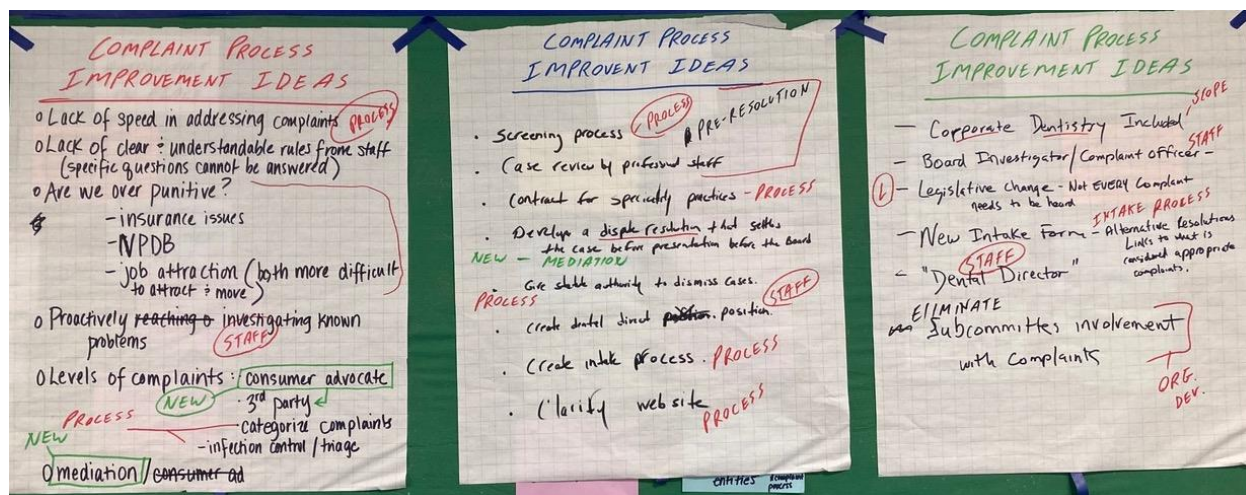 COMPLAINT PROCESS
IMPROVEMENT IDEAS
o Lack of speed in addressing complaints PROCESS
o Lack of clear & understandable rules frome staff
(specific questions cannot be answered)
o Are we over punitive?
- insurance issues
- NPDB
- job attraction (both more difficult
to attract & move)
o Proactively reaching o investigating known
problems STAFF
o Levels of complaints: consumer advocate
NEW · 3rd party
PROCESS - categorize complaints
- infection control / triage
NEW
o mediation / consumer ad
COMPLAINT PROCESS
IMPROVENT IDEAS
· Screening process PROCESS PRE-RESOLUTION
· Case review by professional staff
· Contract for specialty practices - PROCESS
· Develop a dispute resolution that settles
the case before presentation before the Board
NEW - MEDIATION
· Give staff authority to dismiss cases.
PROCESS STAFF
· Create dental direct position. position.
· Create intake process. PROCESS
· Clarify website PROCESS
COMPLAINT PROCESS
IMPROVEMENT IDEAS
- Corporate Dentistry Included SCOPE
- Board Investigator/Complaint officer - STAFF
L - Legislative Change - Not EVERY Complaint
needs to be heard
INTAKE PROCESS
- New Intake Form - Alternative Resolutions
Links to what is
considered appropriate
complaints.
STAFF
- "Dental Director"
ELIMINATE
Subcommittes involvement
with Complaints
ORG.
DEV.
entities complaint
process